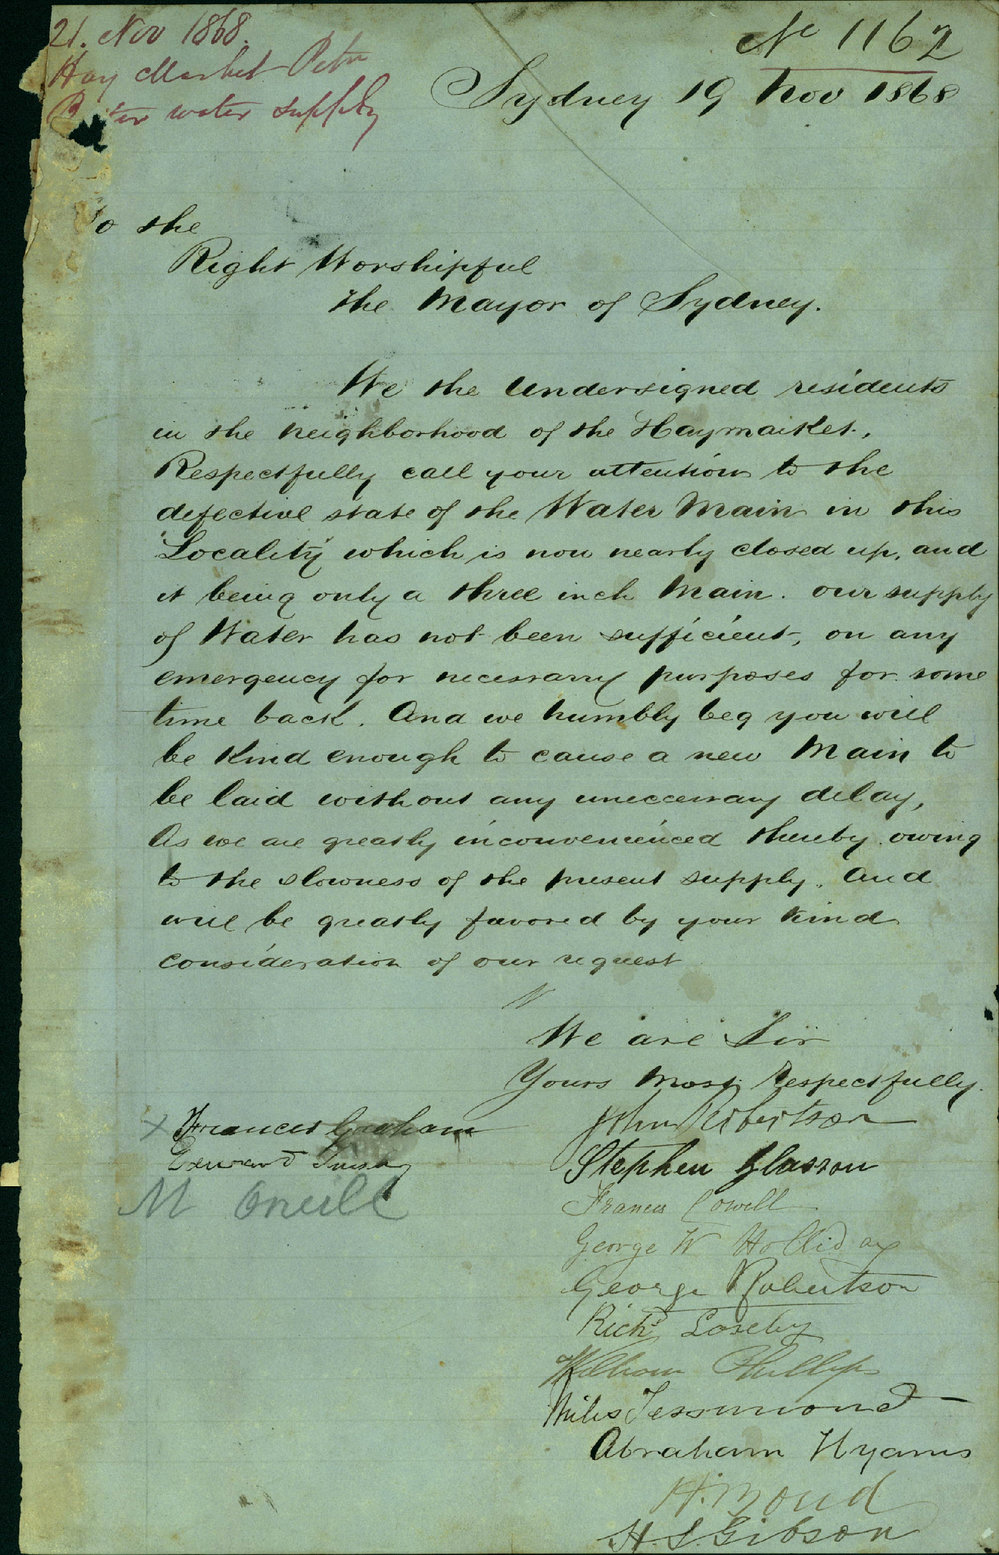 21. Nov 1868.
Hay Market Petn
Better water supply
No 1162
Sydney 19 Nov 1868
To the
Right Worshipful
the Mayor of Sydney.
We the Undersigned residents
in the neighborhood of the Haymarket,
Respectfully call your attention to the
defective state of the Water Main in this
Locality which is now nearly closed up, and
it being only a three inch Main. our supply
of Water has not been sufficient, on any
emergency for necessary purposes for some
time back. And we humbly beg you will
be kind enough to cause a new Main to
be laid without any uneccessary delay,
As we are greatly inconvenienced thereby owing
to the slowness of the present supply. And
will be greatly favored by your kind
consideration of our request
We are Sir
Yours Most Respectfully.
John Robertson
Stephen Glasson
Francis Cowell
George W Holliday
George Robertson
Richd Loseby
William Phillips
Miles Tessimond
Abraham Hyams
H. Bond
H. S. Gibson
Frances Graham
Edward
M Oneill